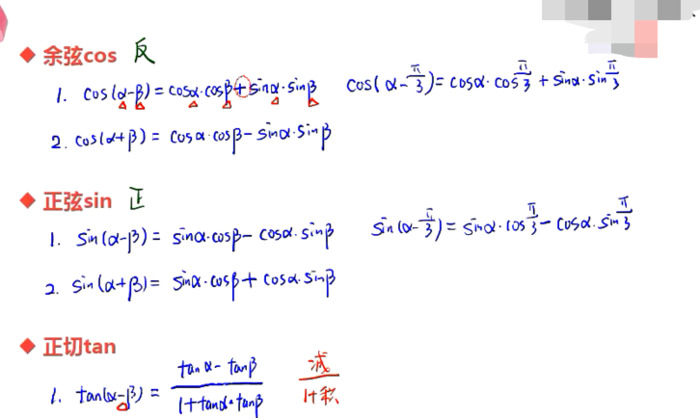 ◆ 余弦cos 反
1. cos(α-β)=cosα·cosβ+sinα·sinβ cos(α-π/3)=cosα·cosπ/3+sinα·sinπ/3
2. cos(α+β)=cosα·cosβ-sinα·sinβ
◆ 正弦sin 正
1. sin(α-β)=sinα·cosβ-cosα·sinβ sin(α-π/3)=sinα·cosπ/3-cosα·sinπ/3
2. sin(α+β)=sinα·cosβ+cosα·sinβ
◆ 正切tan
1. tan(α-β)=(tanα-tanβ)/(1+tanα·tanβ) 减/(1+积)